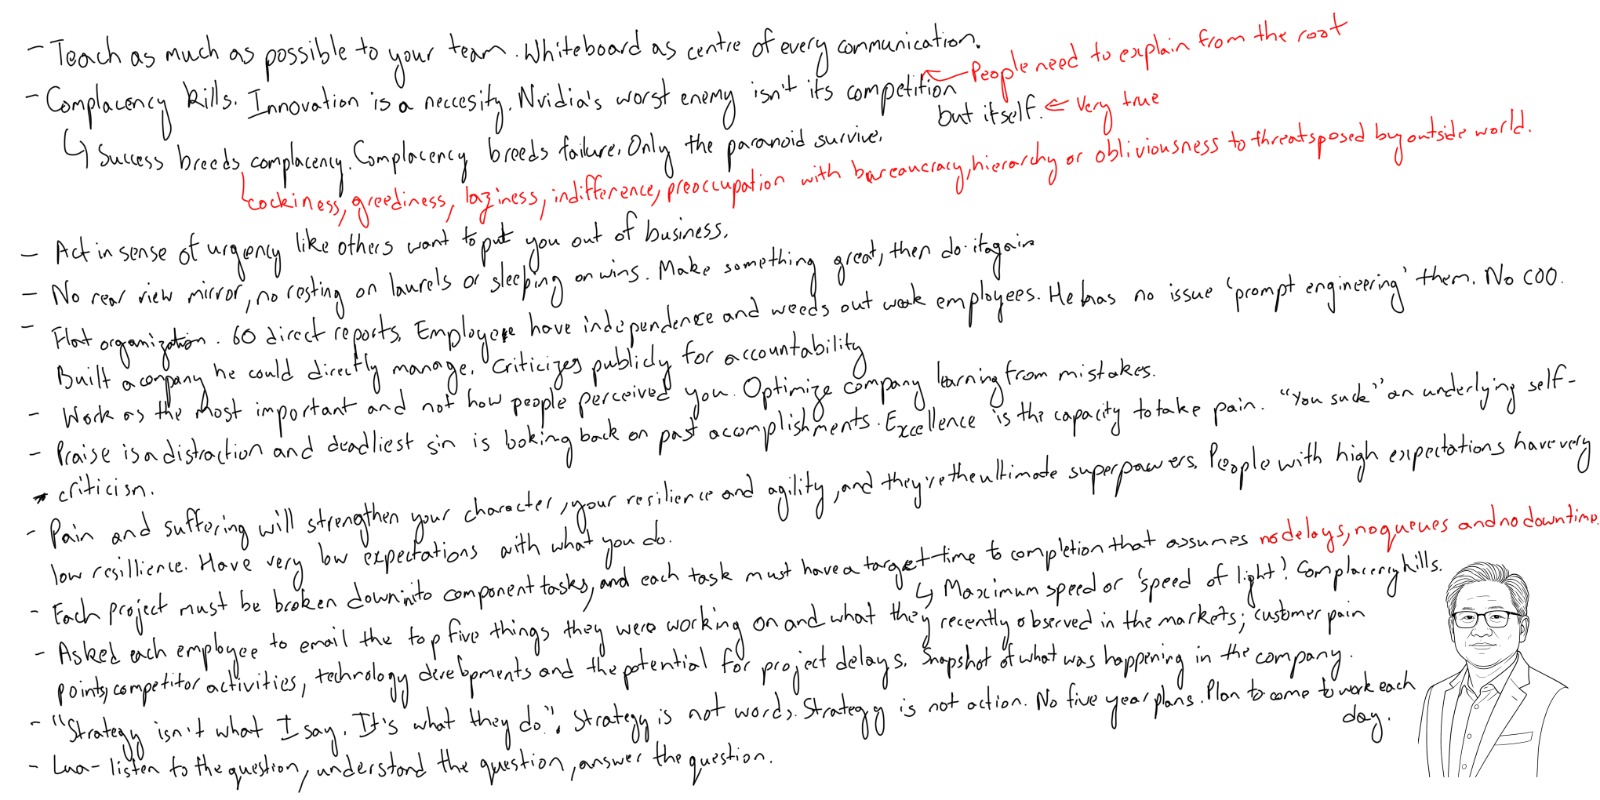 - Teach as much as possible to your team. Whiteboard as centre of every communication.
← People need to explain from the root
- Complacency kills. Innovation is a neccesity. Nvidia's worst enemy isn't its competition
but itself. ← Very true
↳ Success breeds complacency. Complacency breeds failure. Only the paranoid survive.
cockiness, greediness, laziness, indifference, preoccupation with bureaucracy, hierarchy or obliviousness to threats posed by outside world.
- Act in sense of urgency like others want to put you out of business.
- No rear view mirror, no resting on laurels or sleeping on wins. Make something great, then do it again
- Flat organization. 60 direct reports. Employee have independence and weeds out weak employees. He has no issue 'prompt engineering' them. No COO.
Built a company he could directly manage. Criticizes publicly for accountability
- Work as the most important and not how people perceived you. Optimize company learning from mistakes.
- Praise is a distraction and deadliest sin is looking back on past acomplishments. Excellence is the capacity to take pain. "You suck" an underlying self-
criticism.
- Pain and suffering will strengthen your character, your resilience and agility, and they're the ultimate superpowers. People with high expectations have very
low resillience. Have very low expectations with what you do.
- Each project must be broken down into component tasks, and each task must have a target time to completion that assumes no delays, no queues and no downtime.
↳ Maximum speed or 'speed of light'! Complacency kills.
- Asked each employee to email the top five things they were working on and what they recently observed in the markets; customer pain
points, competitor activities, technology developments and the potential for project delays. Snapshot of what was happening in the company.
- "Strategy isn't what I say. It's what they do". Strategy is not words. Strategy is not action. No five year plans. Plan to come to work each
day.
- Lua - listen to the question, understand the question, answer the question.